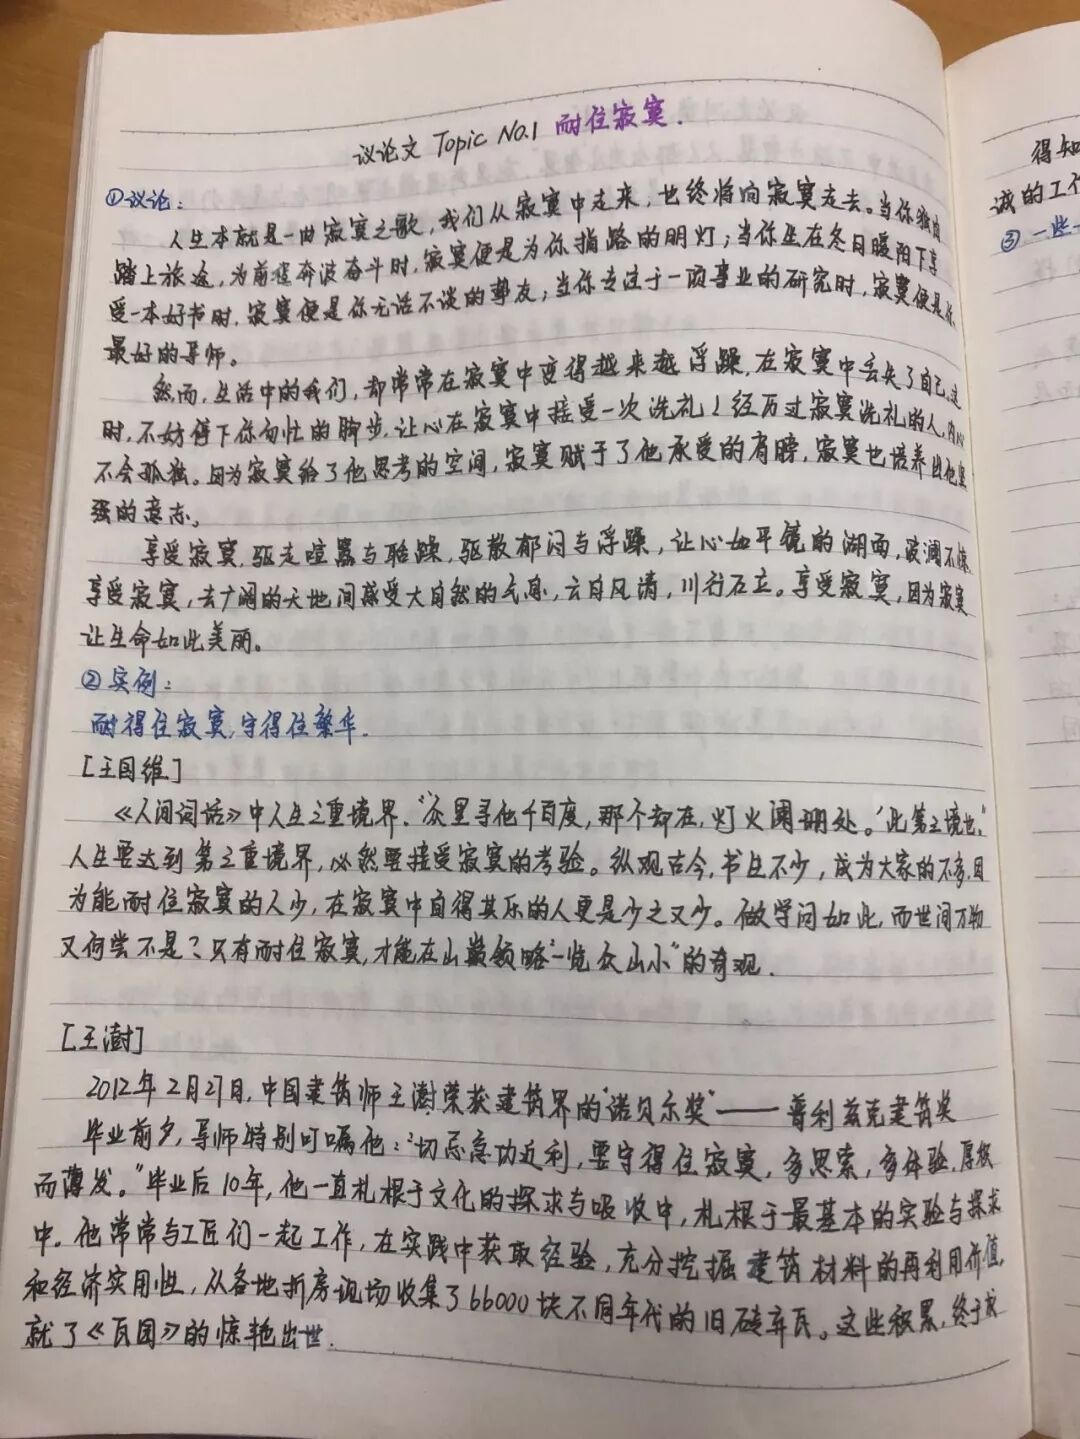 议论文 Topic No.1 耐住寂寞.
①议论:
人生本就是一曲寂寞之歌,我们从寂寞中走来,也终将向寂寞走去。当你独自
踏上旅途,为前程奔波奋斗时,寂寞便是为你指路的明灯;当你坐在冬日暖阳下享
受一本好书时,寂寞便是你无话不谈的挚友;当你专注于一项事业的研究时,寂寞便是你
最好的导师。
然而,生活中的我们,却常常在寂寞中变得越来越浮躁,在寂寞中丢失了自己。这
时,不妨停下你匆忙的脚步,让心在寂寞中接受一次洗礼!经历过寂寞洗礼的人,内心
不会孤独。因为寂寞给了他思考的空间,寂寞赋于了他承受的肩膀,寂寞也培养出他坚
强的意志。
享受寂寞,驱走喧嚣与聒躁,驱散郁闷与浮躁,让心如平镜的湖面,波澜不惊.
享受寂寞,去广阔的天地间感受大自然的气息,云白风清,川行石立。享受寂寞,因为寂寞
让生命如此美丽。
②实例:
耐得住寂寞,守得住繁华.
[王国维]
《人间词话》中人生三重境界.“众里寻他千百度,那个却在,灯火阑珊处。”此第三境也。”
人生要达到第三重境界,必然要接受寂寞的考验。纵观古今,书生不少,成为大家的不多,因
为能耐住寂寞的人少,在寂寞中自得其乐的人更是少之又少。做学问如此,而世间万物
又何尝不是?只有耐住寂寞,才能在山巅领略“一览众山小”的奇观.
[王澍]
2012年2月27日,中国建筑师王澍荣获建筑界的“诺贝尔奖”——普利兹克建筑奖
毕业前夕,导师特别叮嘱他:“切忌急功近利,要守得住寂寞,多思索,多体验,厚积
而薄发。”毕业后10年,他一直札根于文化的探求与吸收中,札根于最基本的实验与探求
中.他常常与工匠们一起工作,在实践中获取经验,充分挖掘建筑材料的再利用价值,
和经济实用性,从各地拆房现场收集了66000块不同年代的旧砖弃瓦。这些积累,终于成
就了《瓦园》的惊艳出世.
得知
诚的工作
③一些